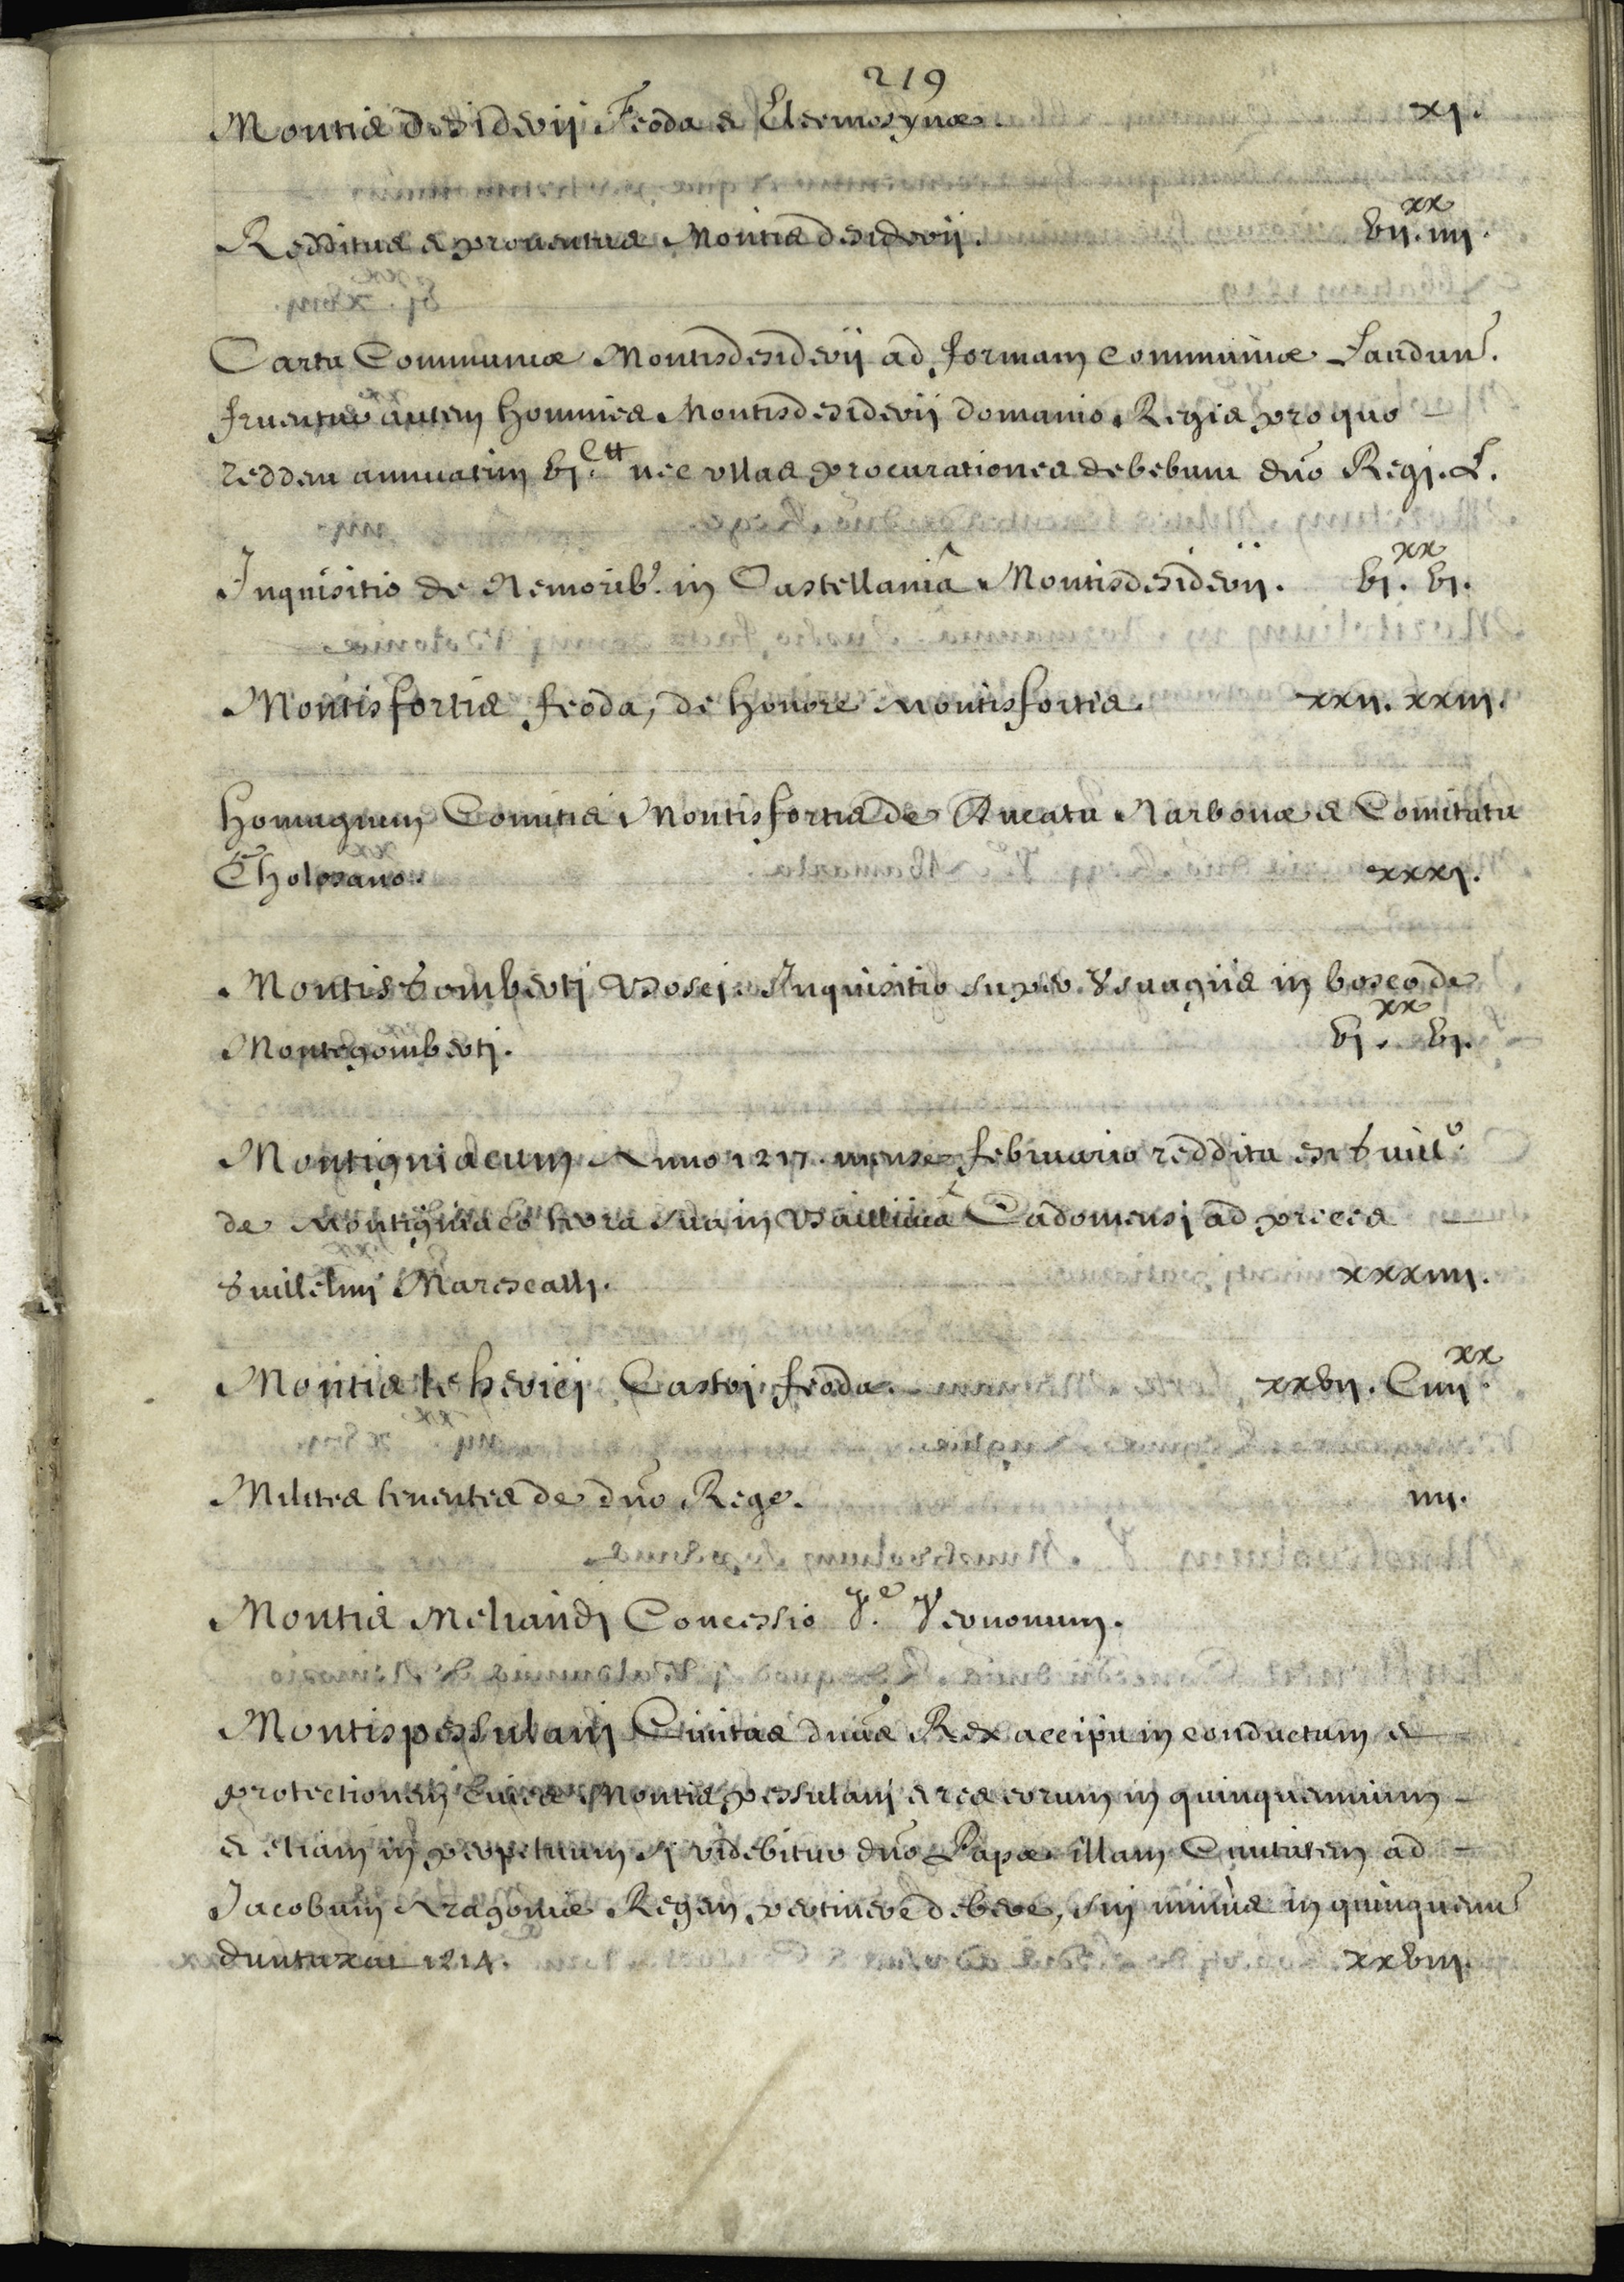 219
Montis desiderij Feoda & Eleemosynæ. xj.
Redditus & prouentus Montis desiderij. vij. iiij^xx.
Carta Communiæ Montisdesiderij ad formam communiæ Laudun̄.
fruentur autem homines Montisdesiderij domanio Regis pro quo
reddent annuatim vj^C tt nec vllas procurationes debebunt dn̄o Regi. L.
Inquisitio de Nemorib' in Castellaniâ Montisdesiderij. vj^xx. vj.
Montisfortis feoda, de honore Montisfortis. xxij. xxiij.
homagium Comitis Montisfortis de Ducatu Narbonæ & Comitatu
Tholosano. xxxj.
Montis Gomberti Bosci. Inquisitio super Vsuagiis in bosco de
Montegomberti. vj^xx. vj.
Montigniacum Anno 1217. mense februario reddita est Guill^o.
de Montigniaco terra sua in Bailliuiâ Cadomensi ad preces
Guillelmi Marescalli. xxxiiij.
Montis leherici Castri feoda. xxvij. Ciiij^xx.
Milites tenentes de dn̄o Rege. iiij.
Montis Meliandi Concessio V.^e Vernonum.
Montispessulani Ciuitas dn̄us Rex accipit in conductum &
protectionem ciues Montis pessulani & res eorum in quinquennium
& etiam in perpetuum si videbitur dn̄o Papæ illam Ciuitatem ad
Jacobum Aragoniæ Regem pertinere debere, sin minùs in quinquenn̄
duntaxat 1214. xxviij.